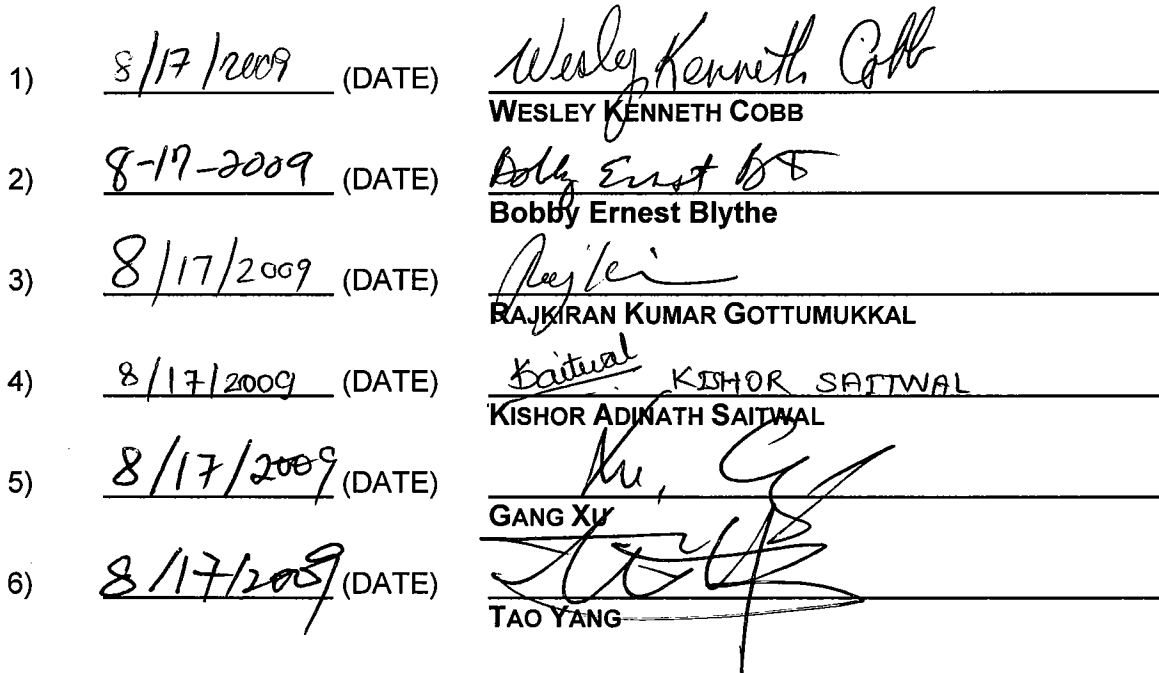 1) 8/17/2009 (DATE) Wesley Kenneth Cobb
WESLEY KENNETH COBB
2) 8-17-2009 (DATE) Ernest
Bobby Ernest Blythe
3) 8/17/2009 (DATE)
RAJKIRAN KUMAR GOTTUMUKKAL
4) 8/17/2009 (DATE) Saitwal KISHOR SAITWAL
KISHOR ADINATH SAITWAL
5) 8/17/2009 (DATE) Xu, G
GANG XU
6) 8/17/2009 (DATE)
TAO YANG